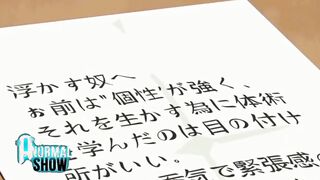 浮かす奴へ
お前は"個性"が強く、
それを生かす為に体術
を学んだのは目の付け
所がいい。
気で緊張感の
ANORMAL
SHOW